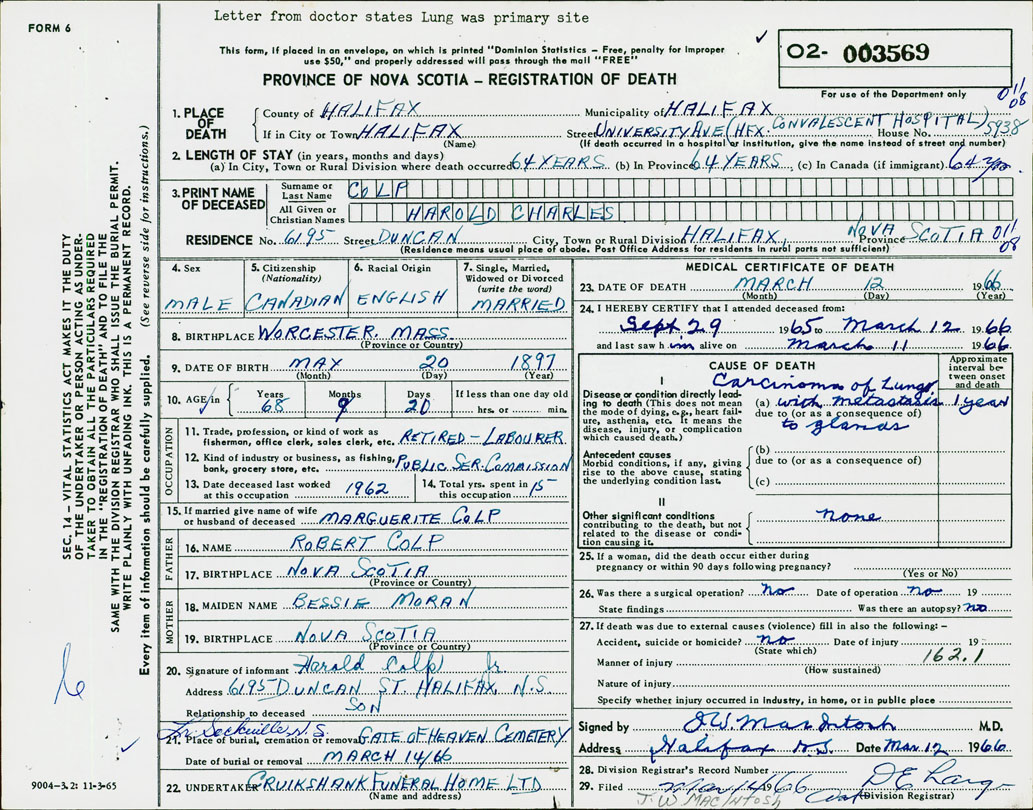 Letter from doctor states Lung was primary site
FORM 6
This form, if placed in an envelope, on which is printed "Dominion Statistics – Free, penalty for improper
use $50," and properly addressed will pass through the mail "FREE"
O2- 003569
PROVINCE OF NOVA SCOTIA – REGISTRATION OF DEATH
For use of the Department only
011
08
1. PLACE OF DEATH
County of HALIFAX Municipality of HALIFAX
If in City or Town HALIFAX Street UNIVERSITY AVE (HFX. CONVALESCENT HOSPITAL) House No. 5938
(Name) (If death occurred in a hospital or institution, give the name instead of street and number)
2. LENGTH OF STAY (in years, months and days)
(a) In City, Town or Rural Division where death occurred 64 YEARS (b) In Province 64 YEARS, (c) In Canada (if immigrant) 64 yrs
3. PRINT NAME OF DECEASED
Surname or Last Name COLP
All Given or Christian Names HAROLD CHARLES
RESIDENCE No. 6195 Street DUNCAN City, Town or Rural Division HALIFAX, Province NOVA SCOTIA 011
08
(Residence means usual place of abode. Post Office Address for residents in rural parts not sufficient)
4. Sex MALE
5. Citizenship (Nationality) CANADIAN
6. Racial Origin ENGLISH
7. Single, Married, Widowed or Divorced (write the word) MARRIED
8. BIRTHPLACE WORCESTER, MASS.
(Province or Country)
9. DATE OF BIRTH MAY 20 1897
(Month) (Day) (Year)
10. AGE in Years 68 Months 9 Days 20 If less than one day old
hrs. or min.
OCCUPATION
11. Trade, profession, or kind of work as
fisherman, office clerk, sales clerk, etc. RETIRED – LABOURER
12. Kind of industry or business, as fishing,
bank, grocery store, etc. PUBLIC SER. COMMISSION
13. Date deceased last worked
at this occupation 1962
14. Total yrs. spent in
this occupation 15
15. If married give name of wife
or husband of deceased MARGUERITE COLP
FATHER
16. NAME ROBERT COLP
17. BIRTHPLACE NOVA SCOTIA
(Province or Country)
MOTHER
18. MAIDEN NAME BESSIE MORAN
19. BIRTHPLACE NOVA SCOTIA
(Province or Country)
20. Signature of informant Harold Colp Jr.
Address 6195 DUNCAN ST. HALIFAX, N.S.
Relationship to deceased SON
Lr. Sackville, N.S.
21. Place of burial, cremation or removal GATE OF HEAVEN CEMETERY
Date of burial or removal MARCH 14/66
22. UNDERTAKER CRUIKSHANK FUNERAL HOME LTD
(Name and address)
MEDICAL CERTIFICATE OF DEATH
23. DATE OF DEATH MARCH 12 1966
(Month) (Day) (Year)
24. I HEREBY CERTIFY that I attended deceased from:
Sept 29 1965 to March 12 1966
and last saw him alive on March 11 1966.
CAUSE OF DEATH
Approximate interval between onset and death
I
Disease or condition directly leading to death (This does not mean the mode of dying, e.g., heart failure, asthenia, etc. It means the disease, injury, or complication which caused death.)
Carcinoma of Lungs
(a) with metastasis 1 year
due to (or as a consequence of)
to glands
Antecedent causes
Morbid conditions, if any, giving rise to the above cause, stating the underlying condition last.
(b)
due to (or as a consequence of)
(c)
II
Other significant conditions
contributing to the death, but not related to the disease or condition causing it.
none
25. If a woman, did the death occur either during
pregnancy or within 90 days following pregnancy?
(Yes or No)
26. Was there a surgical operation? no Date of operation no 19
State findings Was there an autopsy? no
27. If death was due to external causes (violence) fill in also the following: –
Accident, suicide or homicide? no Date of injury 19
(State which)
162.1
Manner of injury
(How sustained)
Nature of injury
Specify whether injury occurred in industry, in home, or in public place
Signed by J.W. MacIntosh M.D.
Address Halifax N.S. Date Mar. 12 1966
28. Division Registrar's Record Number
29. Filed Mar 14 1966
(Division Registrar)
J. W MACINTOSH
SEC. 14 – VITAL STATISTICS ACT MAKES IT THE DUTY
OF THE UNDERTAKER OR PERSON ACTING AS UNDER-
TAKER TO OBTAIN ALL THE PARTICULARS REQUIRED
IN THE "REGISTRATION OF DEATH" AND TO FILE THE
SAME WITH THE DIVISION REGISTRAR WHO SHALL ISSUE THE BURIAL PERMIT.
WRITE PLAINLY WITH UNFADING INK. THIS IS A PERMANENT RECORD.
Every item of information should be carefully supplied. (See reverse side for instructions.)
9004–3.2: 11-3-65